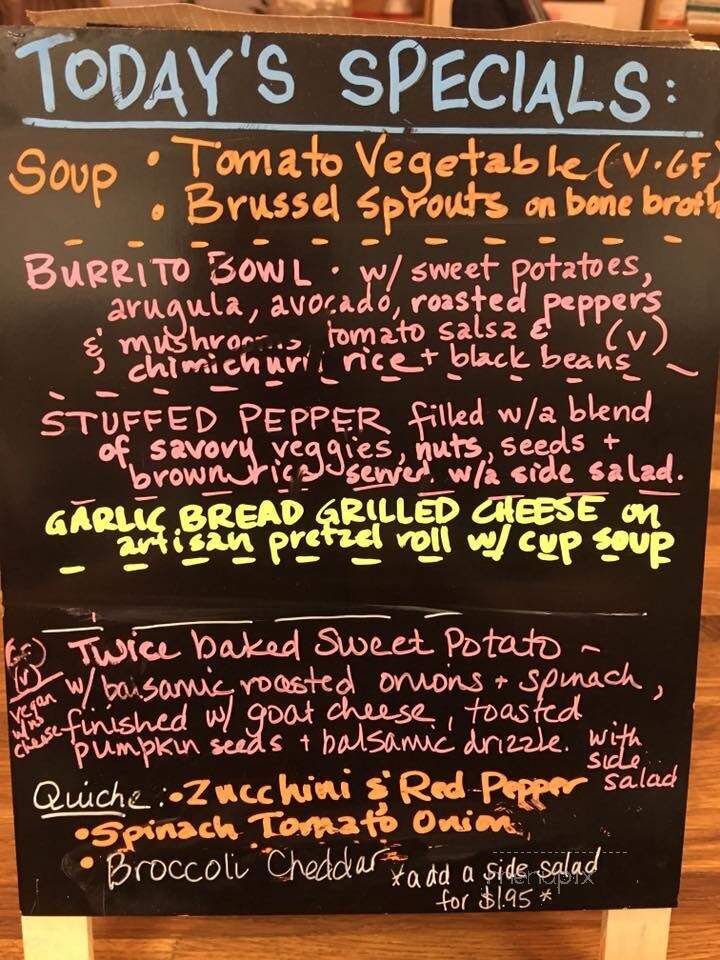 TODAY'S SPECIALS:
SOUP • Tomato Vegetable (V•GF)
• Brussel Sprouts on bone broth
BURRITO BOWL • w/ sweet potatoes,
arugula, avocado, roasted peppers
& mushrooms, tomato salsa & (V)
chimichurri, rice + black beans
STUFFED PEPPER filled w/a blend
of savory veggies, nuts, seeds +
brown rice served w/a side salad.
GARLIC BREAD GRILLED CHEESE on
artisan pretzel roll w/ cup soup
(GF) Twice baked Sweet Potato ~
(V) w/ balsamic roasted onions + spinach,
vegan w/no cheese finished w/ goat cheese, toasted
pumpkin seeds + balsamic drizzle. with
side
salad
Quiche: • Zucchini & Red Pepper
• Spinach Tomato Onion
• Broccoli Cheddar *add a side salad
for $1.95*
menupix